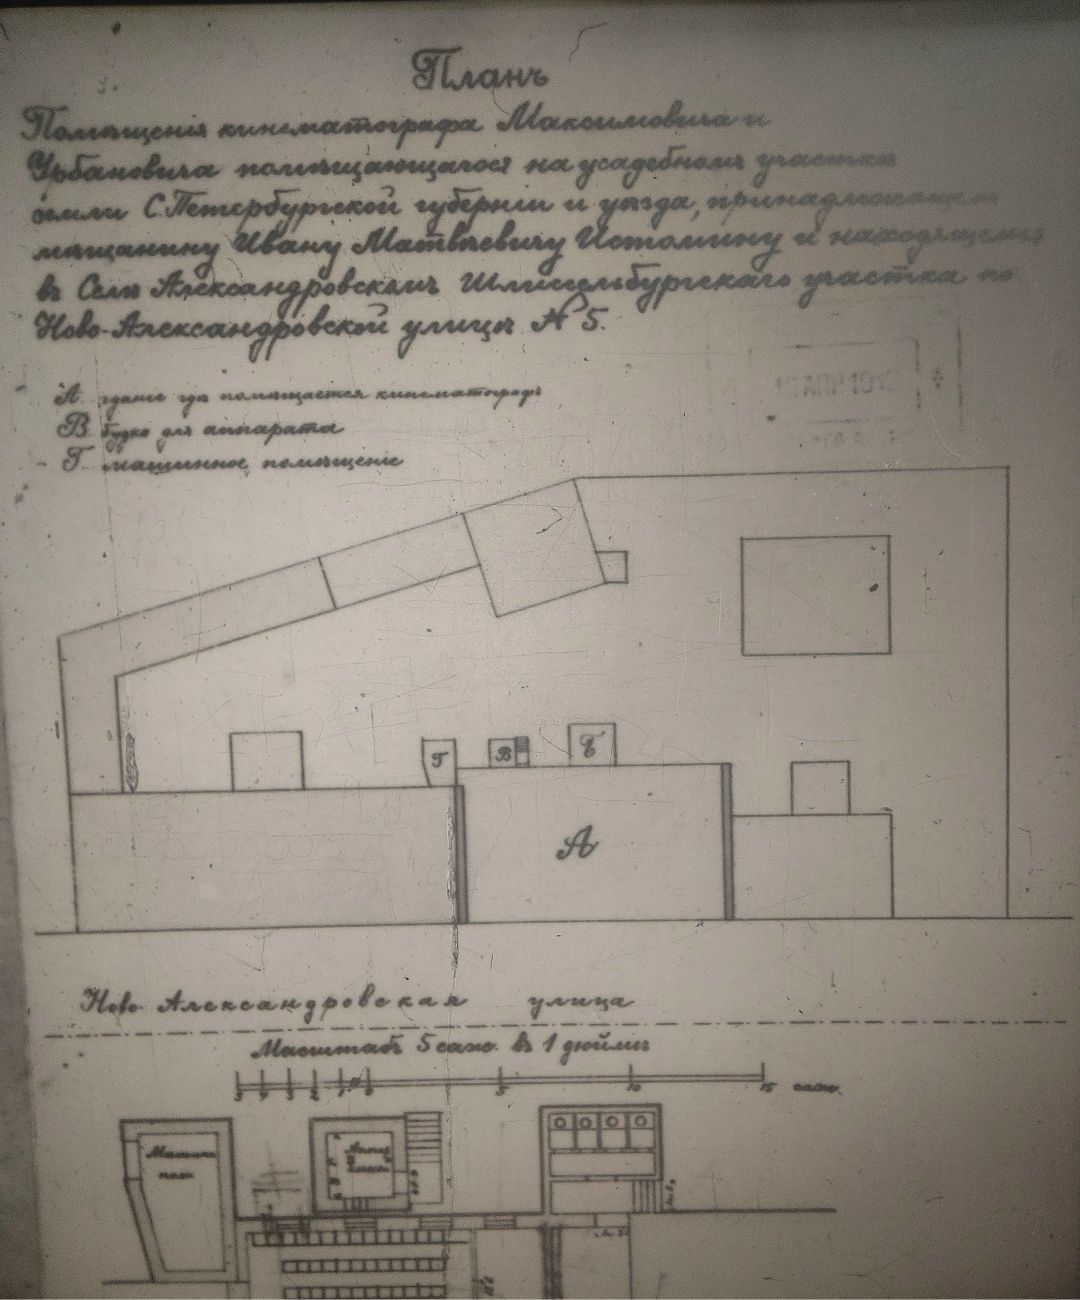 Планъ
Помѣщенія кинематографа Максимовича и
Урбановича помѣщающагося на усадебномъ участкѣ
земли С.Петербургской губерніи и уѣзда, принадлежащемъ
мѣщанину Ивану Матвѣевичу Истомину и находящемся
въ Селѣ Александровскомъ Шлиссельбургскаго участка по
Ново-Александровской улицѣ № 5.
А зданіе гдѣ помѣщается кинематографъ
В будка для аппарата
Г машинное помѣщеніе
Г
В
Б
А
Ново-Александровская улица
Масштабъ 5 саж. въ 1 дюймѣ
5 4 3 2 1 0 5 10 15 саж.